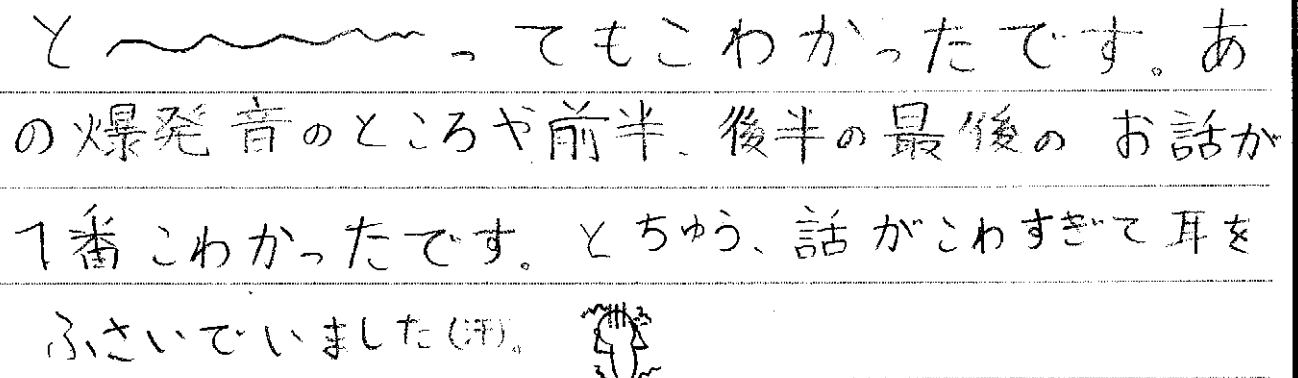 と〜〜〜〜ってもこわかったです。あ
の爆発音のところや前半、後半の最後のお話が
1番こわかったです。とちゅう、話がこわすぎて耳を
ふさいでいました(汗)。